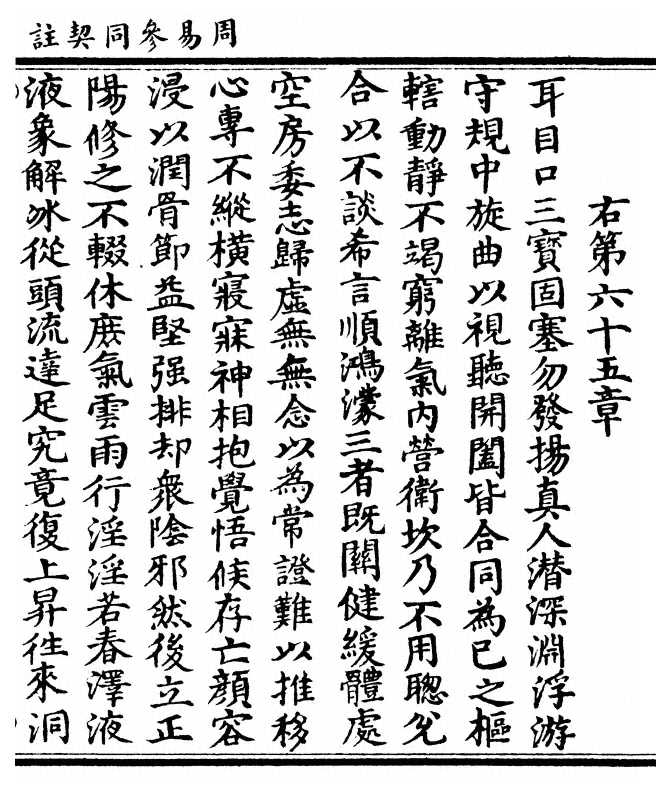 周易參同契註
右第六十五章
耳目口三寶固塞勿發揚真人潛深淵浮游
守規中旋曲以視聽開闔皆合同為已之樞
轄動靜不竭窮離氣內營衛坎乃不用聰兌
合以不談希言順鴻濛三者既關健緩體處
空房委志歸虛無無念以為常證難以推移
心專不縱橫寢寐神相抱覺悟候存亡顏容
浸以潤骨節益堅强排却衆陰邪然後立正
陽修之不輟休庶氣雲雨行淫淫若春澤液
液象解冰從頭流達足究竟復上昇徃來洞